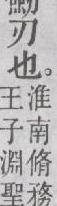 刃也。
淮南脩務
王子淵聖